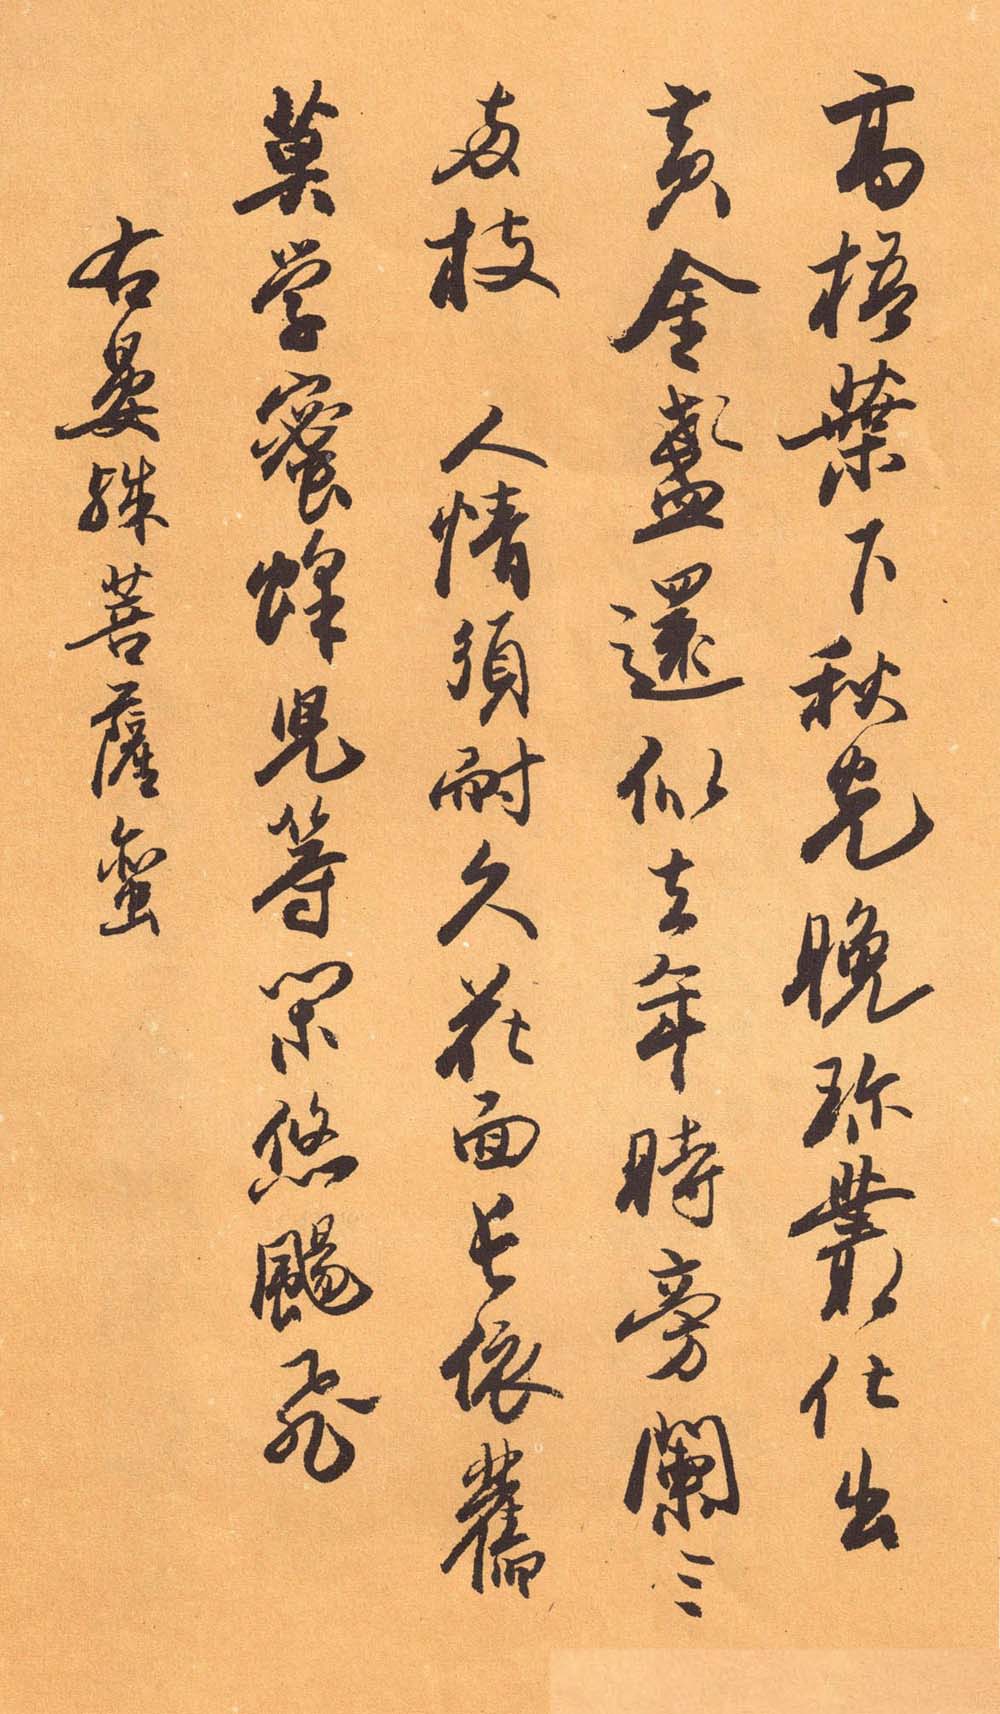 高梧葉下秋光晚珍叢化出
黃金盞還似去年時旁闌三
兩枝 人情須耐久花面長依舊
莫学蜜蜂兒等閑悠颺飛
右晏殊菩薩蠻